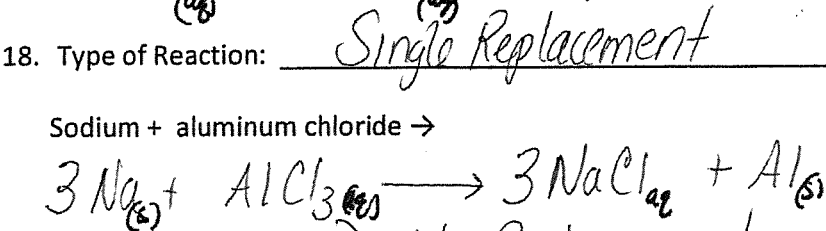 (aq) (aq)
18. Type of Reaction: Single Replacement
Sodium + aluminum chloride →
3 Na(s) + AlCl3(aq) → 3 NaCl aq + Al(s)